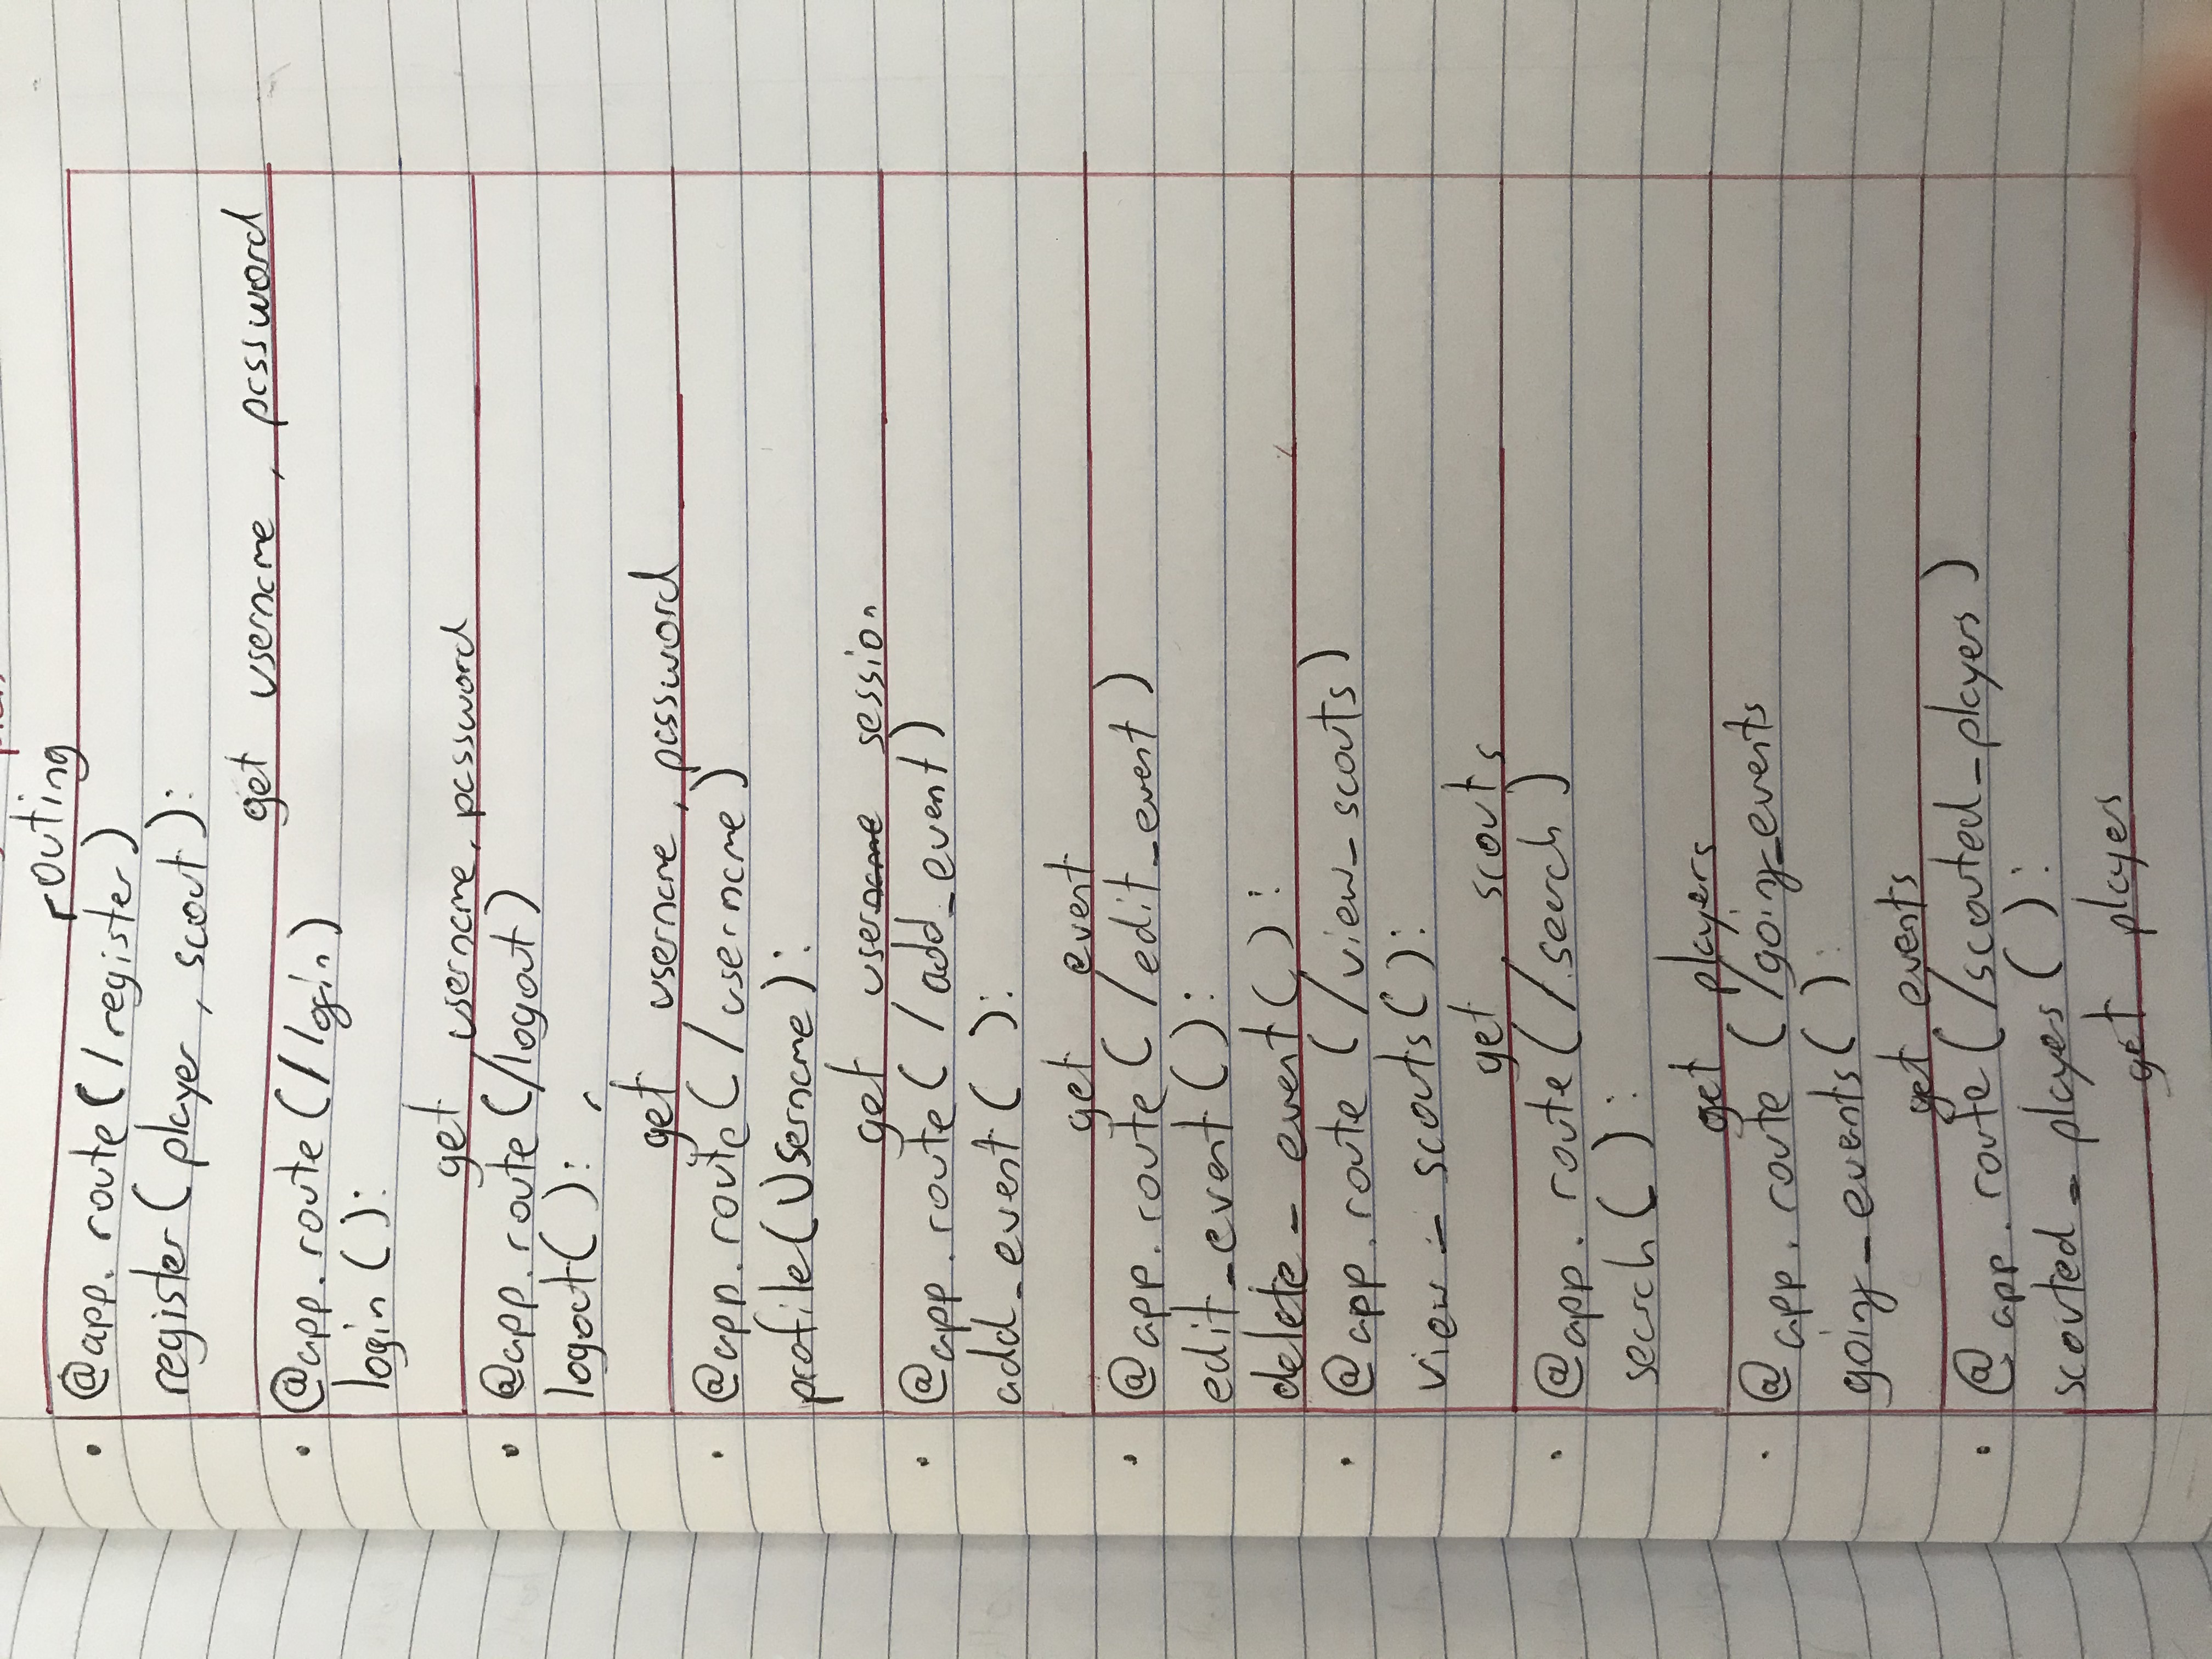 routing
@app.route(/register)
register(player, scout):
get username, password
@app.route(/login)
login():
get username, password
@app.route(/logout)
logout():
get username, password
@app.route(/username)
profile(Username):
get username session
@app.route(/add_event)
add_event():
get event
@app.route(/edit_event)
edit_event():
delete_event():
@app.route(/view_scouts)
view_scouts():
get scouts
@app.route(/search)
search():
get players
@app.route(/going_events
going_events():
get events
@app.route(/scouted_players)
scouted_players():
get players